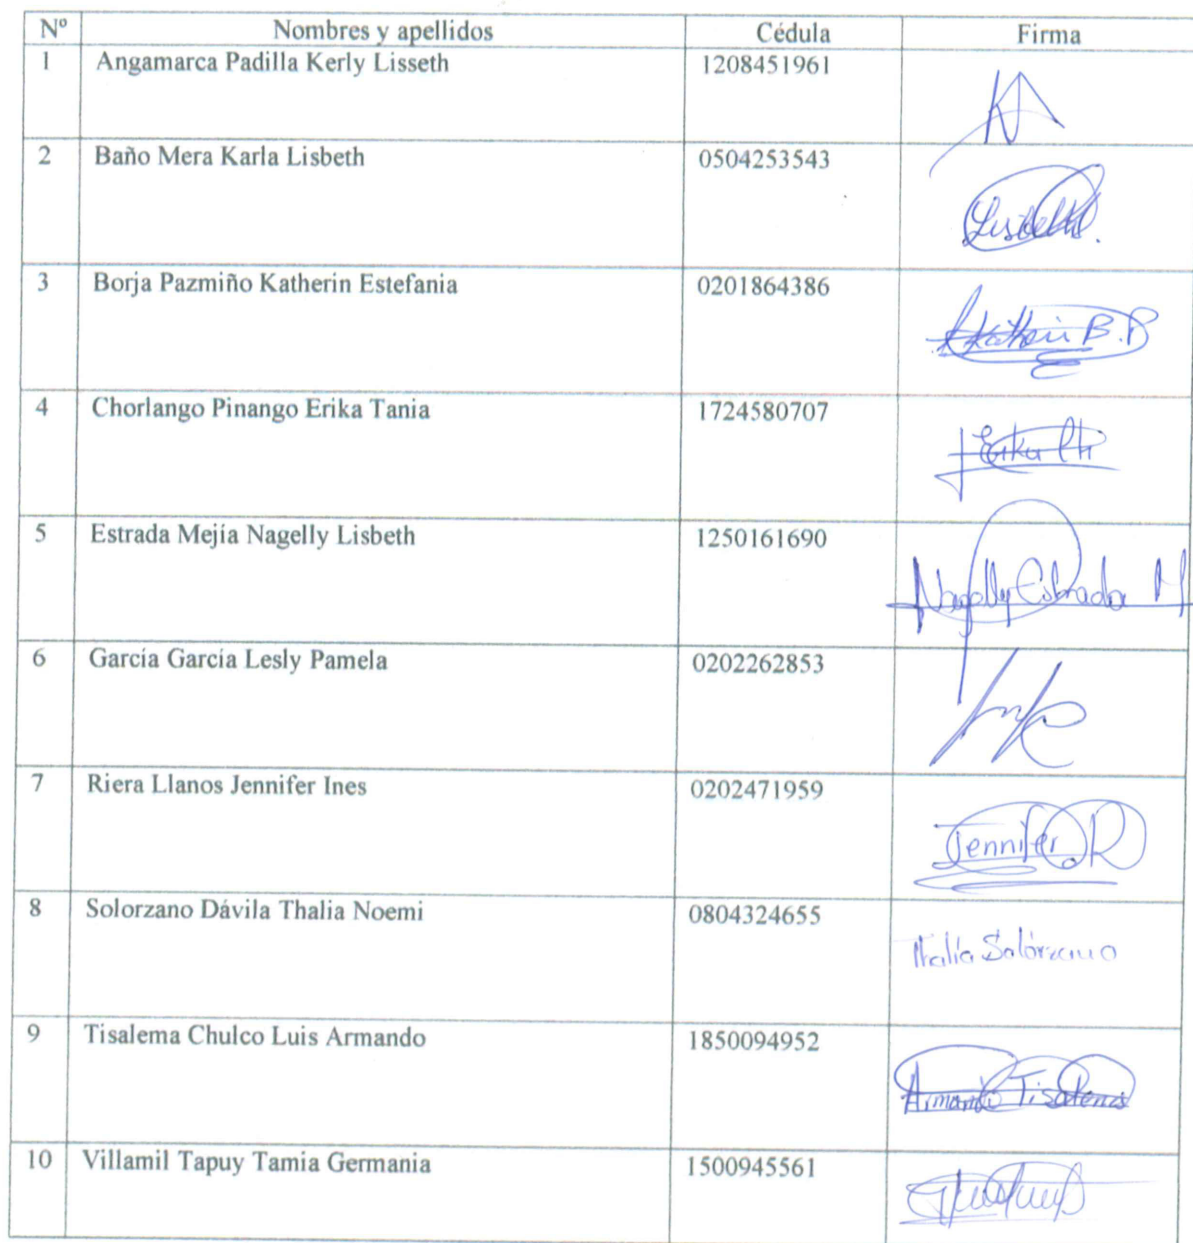 Nº Nombres y apellidos Cédula Firma
1 Angamarca Padilla Kerly Lisseth 1208451961
2 Baño Mera Karla Lisbeth 0504253543
Lisbeth.
3 Borja Pazmiño Katherin Estefania 0201864386
B.P
4 Chorlango Pinango Erika Tania 1724580707
Erika Ch
5 Estrada Mejía Nagelly Lisbeth 1250161690
Nagelly Estrada M
6 García García Lesly Pamela 0202262853
7 Riera Llanos Jennifer Ines 0202471959
Jennifer.R
8 Solorzano Dávila Thalia Noemi 0804324655
Thalía Solórzano
9 Tisalema Chulco Luis Armando 1850094952
Armando Tisalema
10 Villamil Tapuy Tamia Germania 1500945561